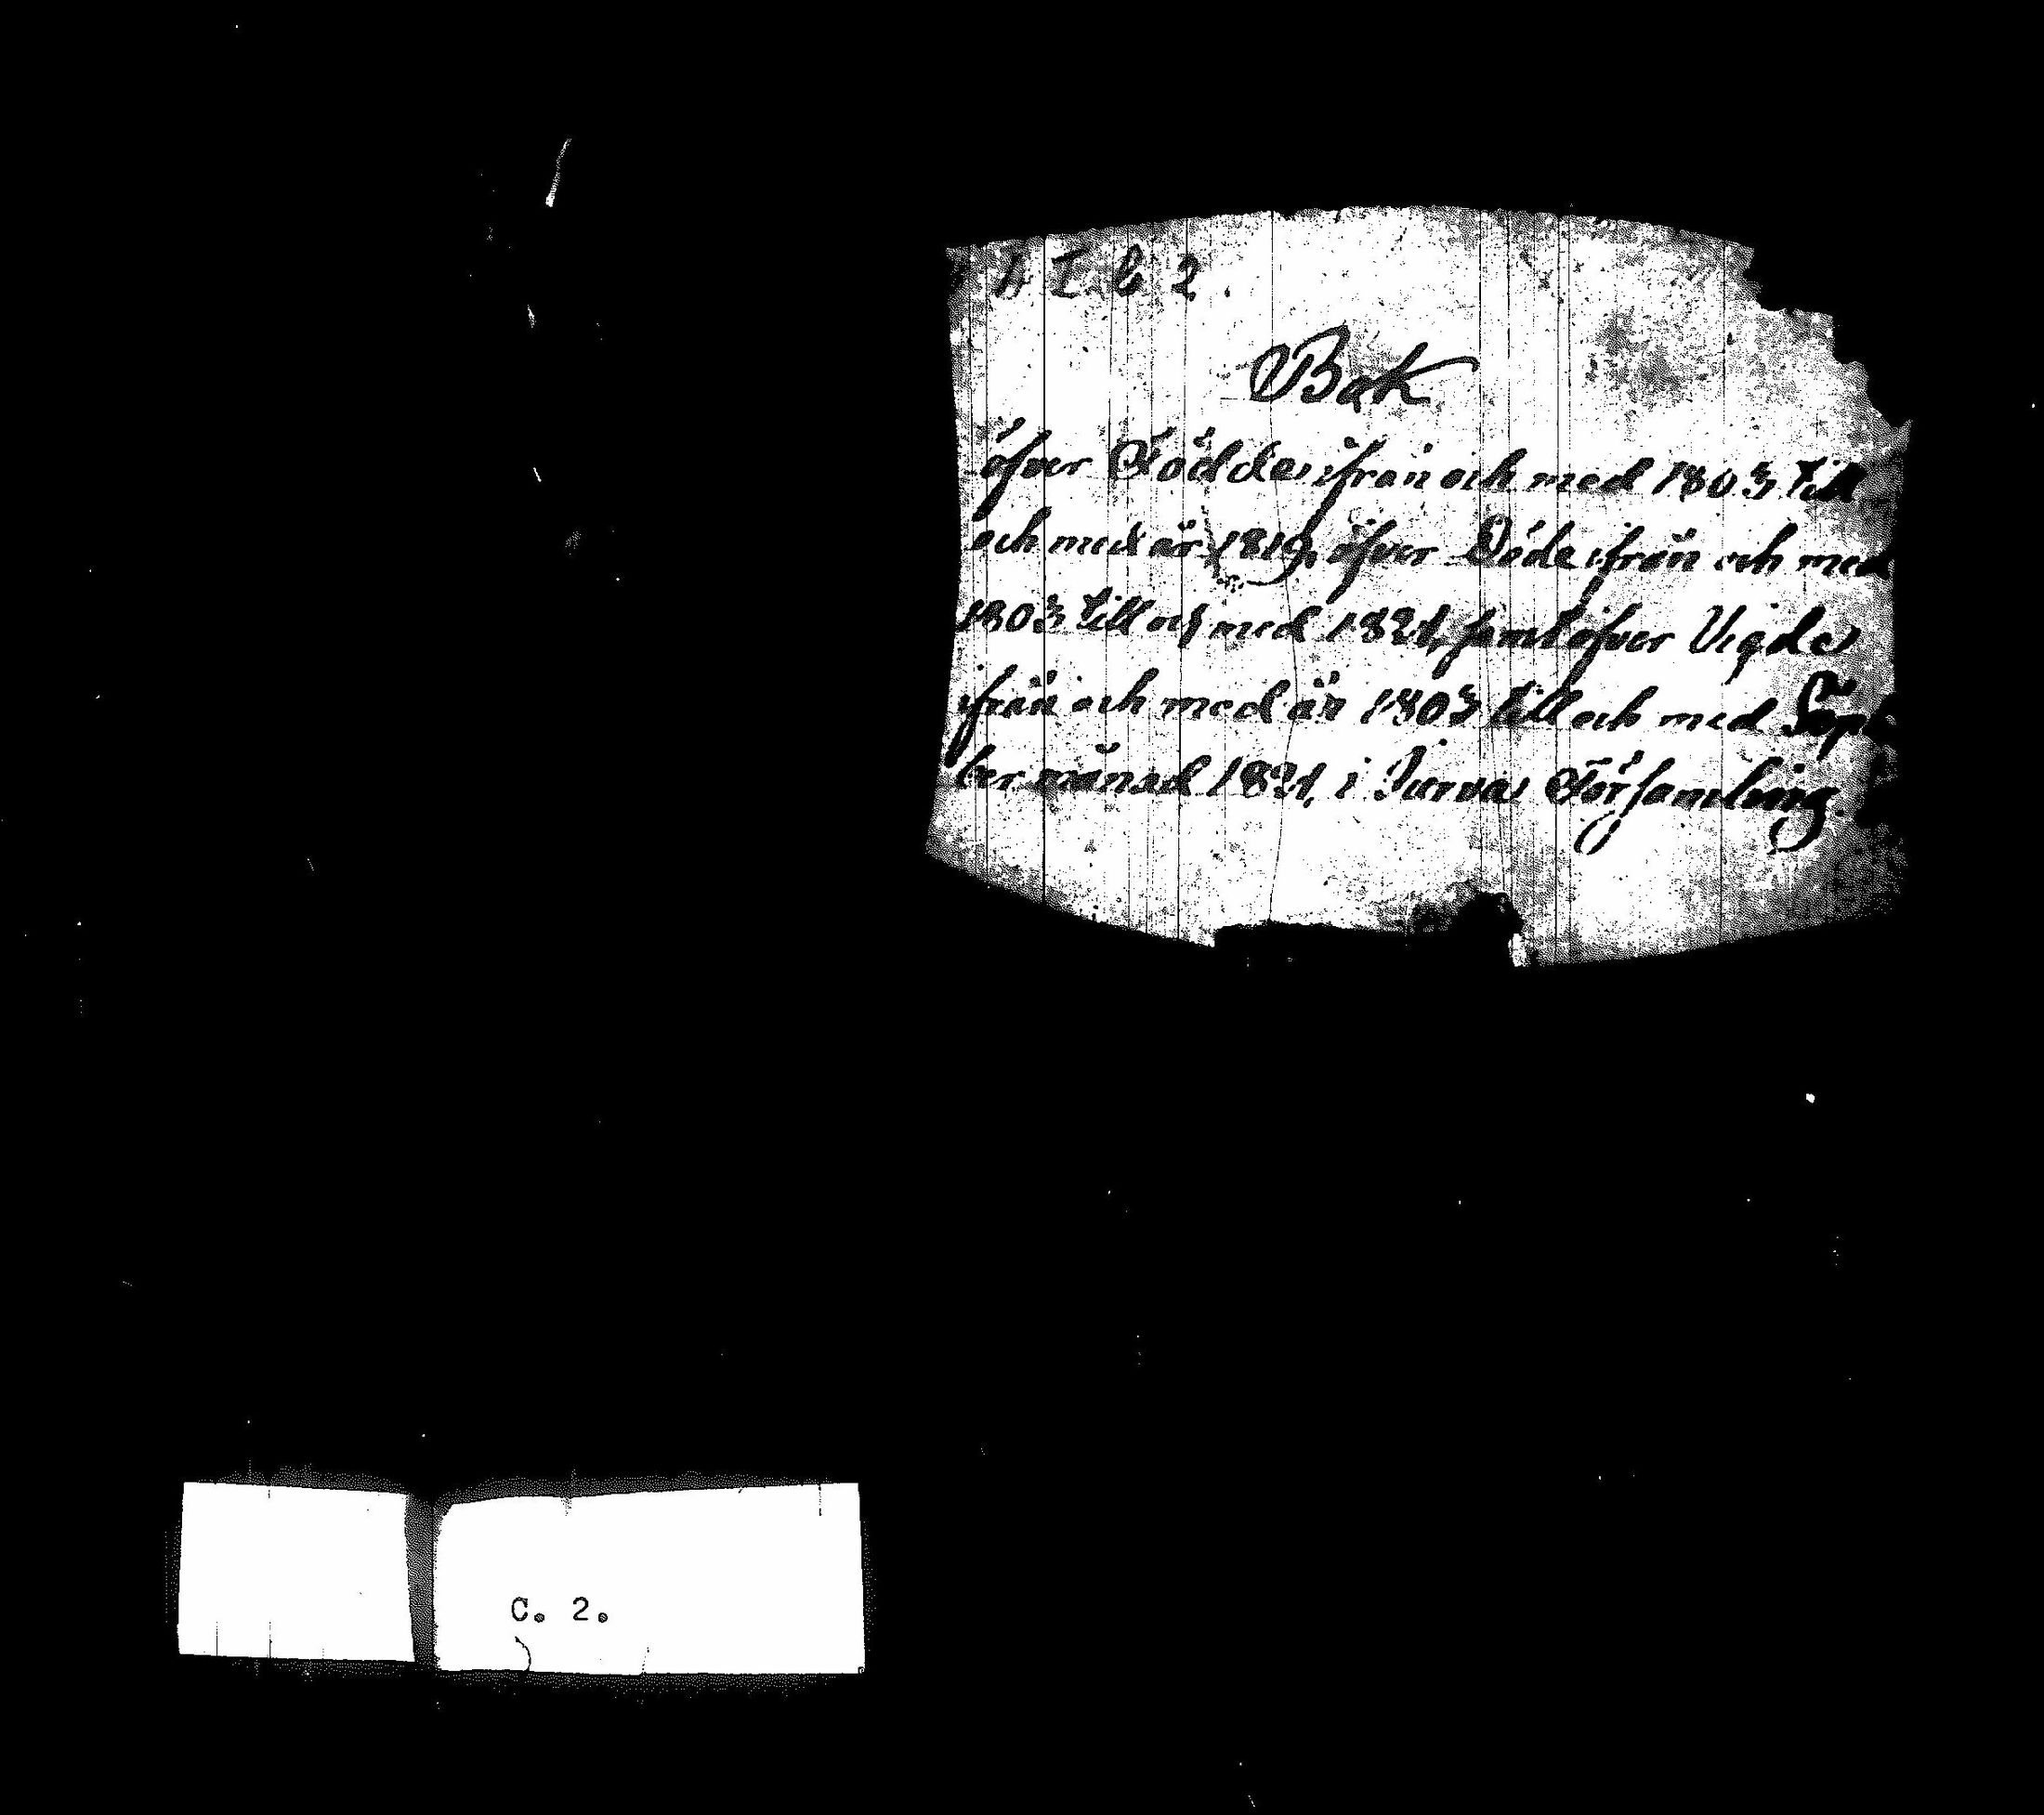 I C 2.
Bok
öfver Födde, ifrån och med 1803 till
och med år 1819, öfver Döde ifrån och med
1803 till och med 1821, samt öfver Vigde
ifrån och med år 1803 till och med Sept
ber månad 1821, i Jurva Församling.
C. 2.